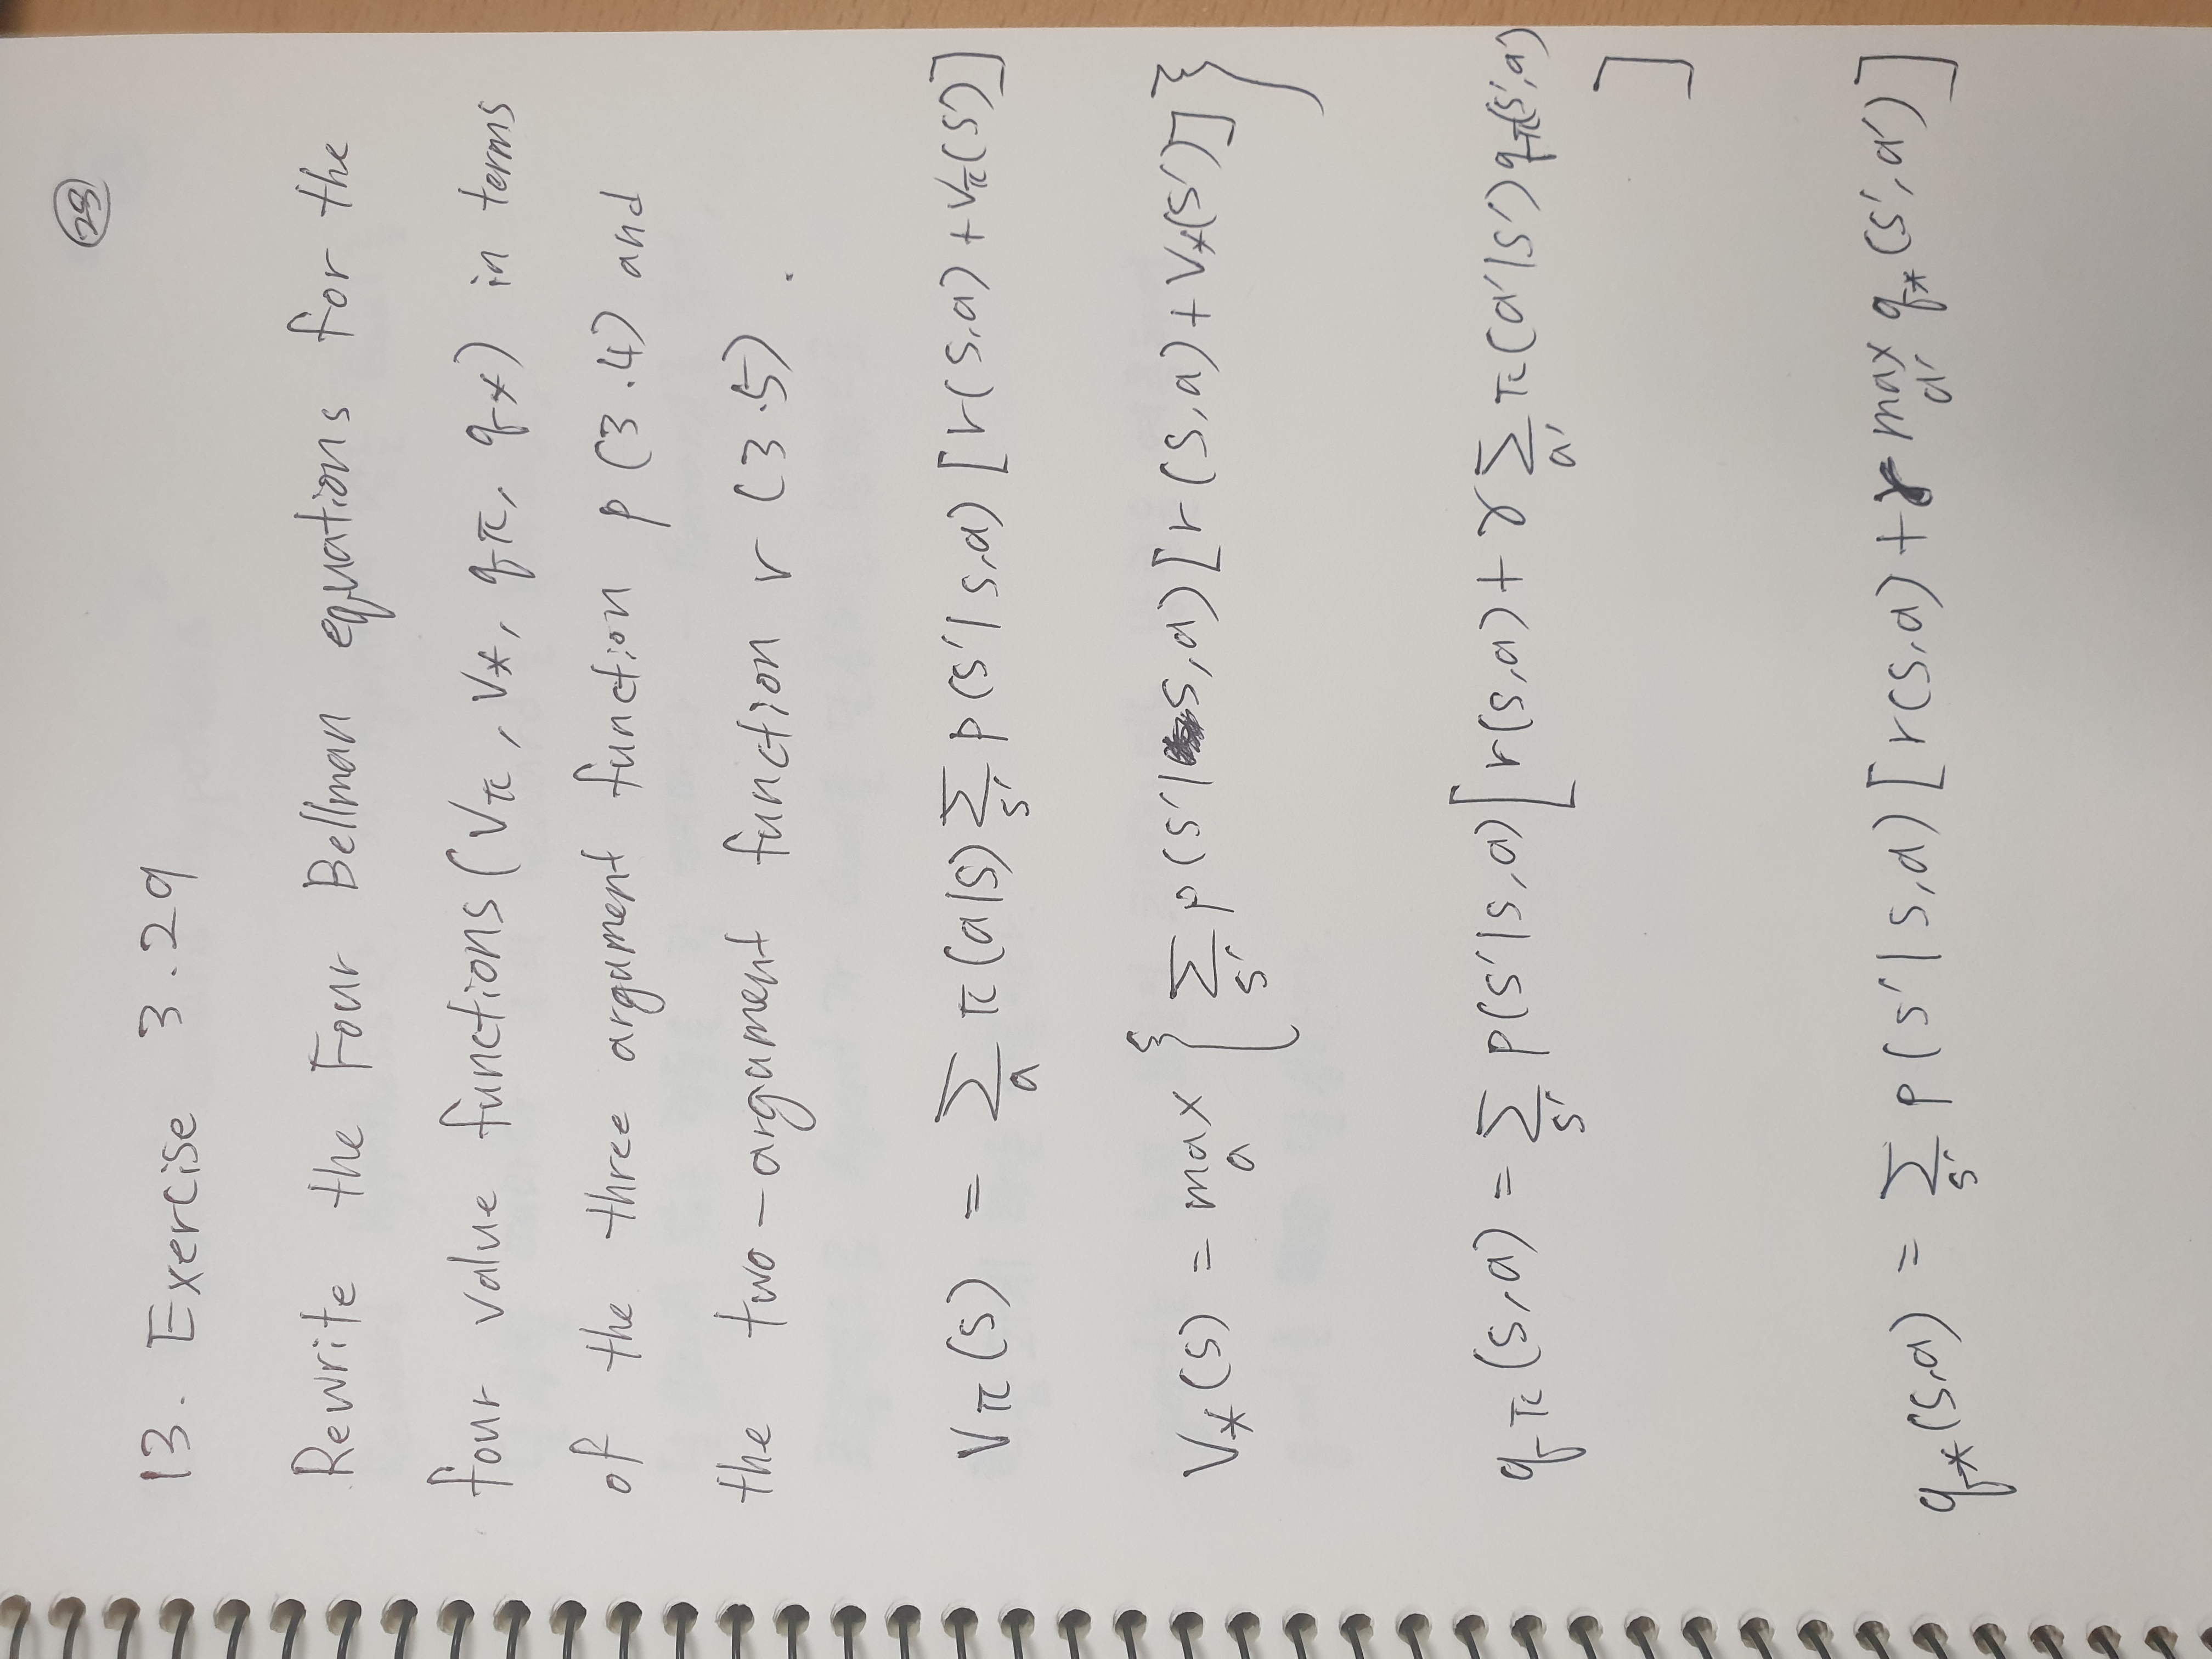 28
13. Exercise 3.29
Rewrite the Four Bellman equations for the
four value functions (Vπ, V*, qπ, q*) in terms
of the three argument function p (3.4) and
the two-argument function r (3.5).
Vπ(s) = Σ_a π(a|s) Σ_s' p(s'|s,a) [r(s,a) + Vπ(s')]
V*(s) = max_a { Σ_s' p(s'|s,a) [r(s,a) + V*(s')] }
qπ(s,a) = Σ_s' p(s'|s,a) [r(s,a) + γ Σ_a' π(a'|s') qπ(s',a')
]
q*(s,a) = Σ_s' p(s'|s,a) [r(s,a) + γ max_a' q*(s',a')]